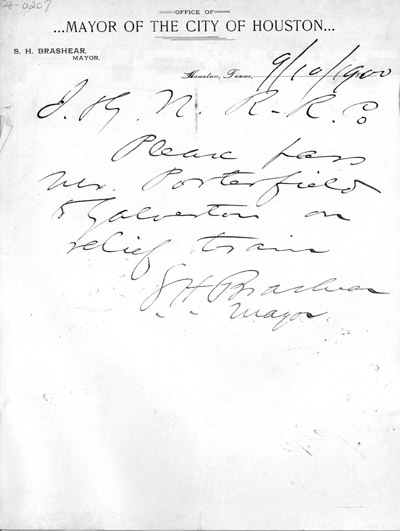 28-0207
OFFICE OF
...MAYOR OF THE CITY OF HOUSTON...
S. H. BRASHEAR,
MAYOR.
Houston, Texas, 9/10/1900
I. & G. N. R.R. Co
Please pass
Mr. Porterfield
to Galveston on
relief train
S H Brashear
Mayor